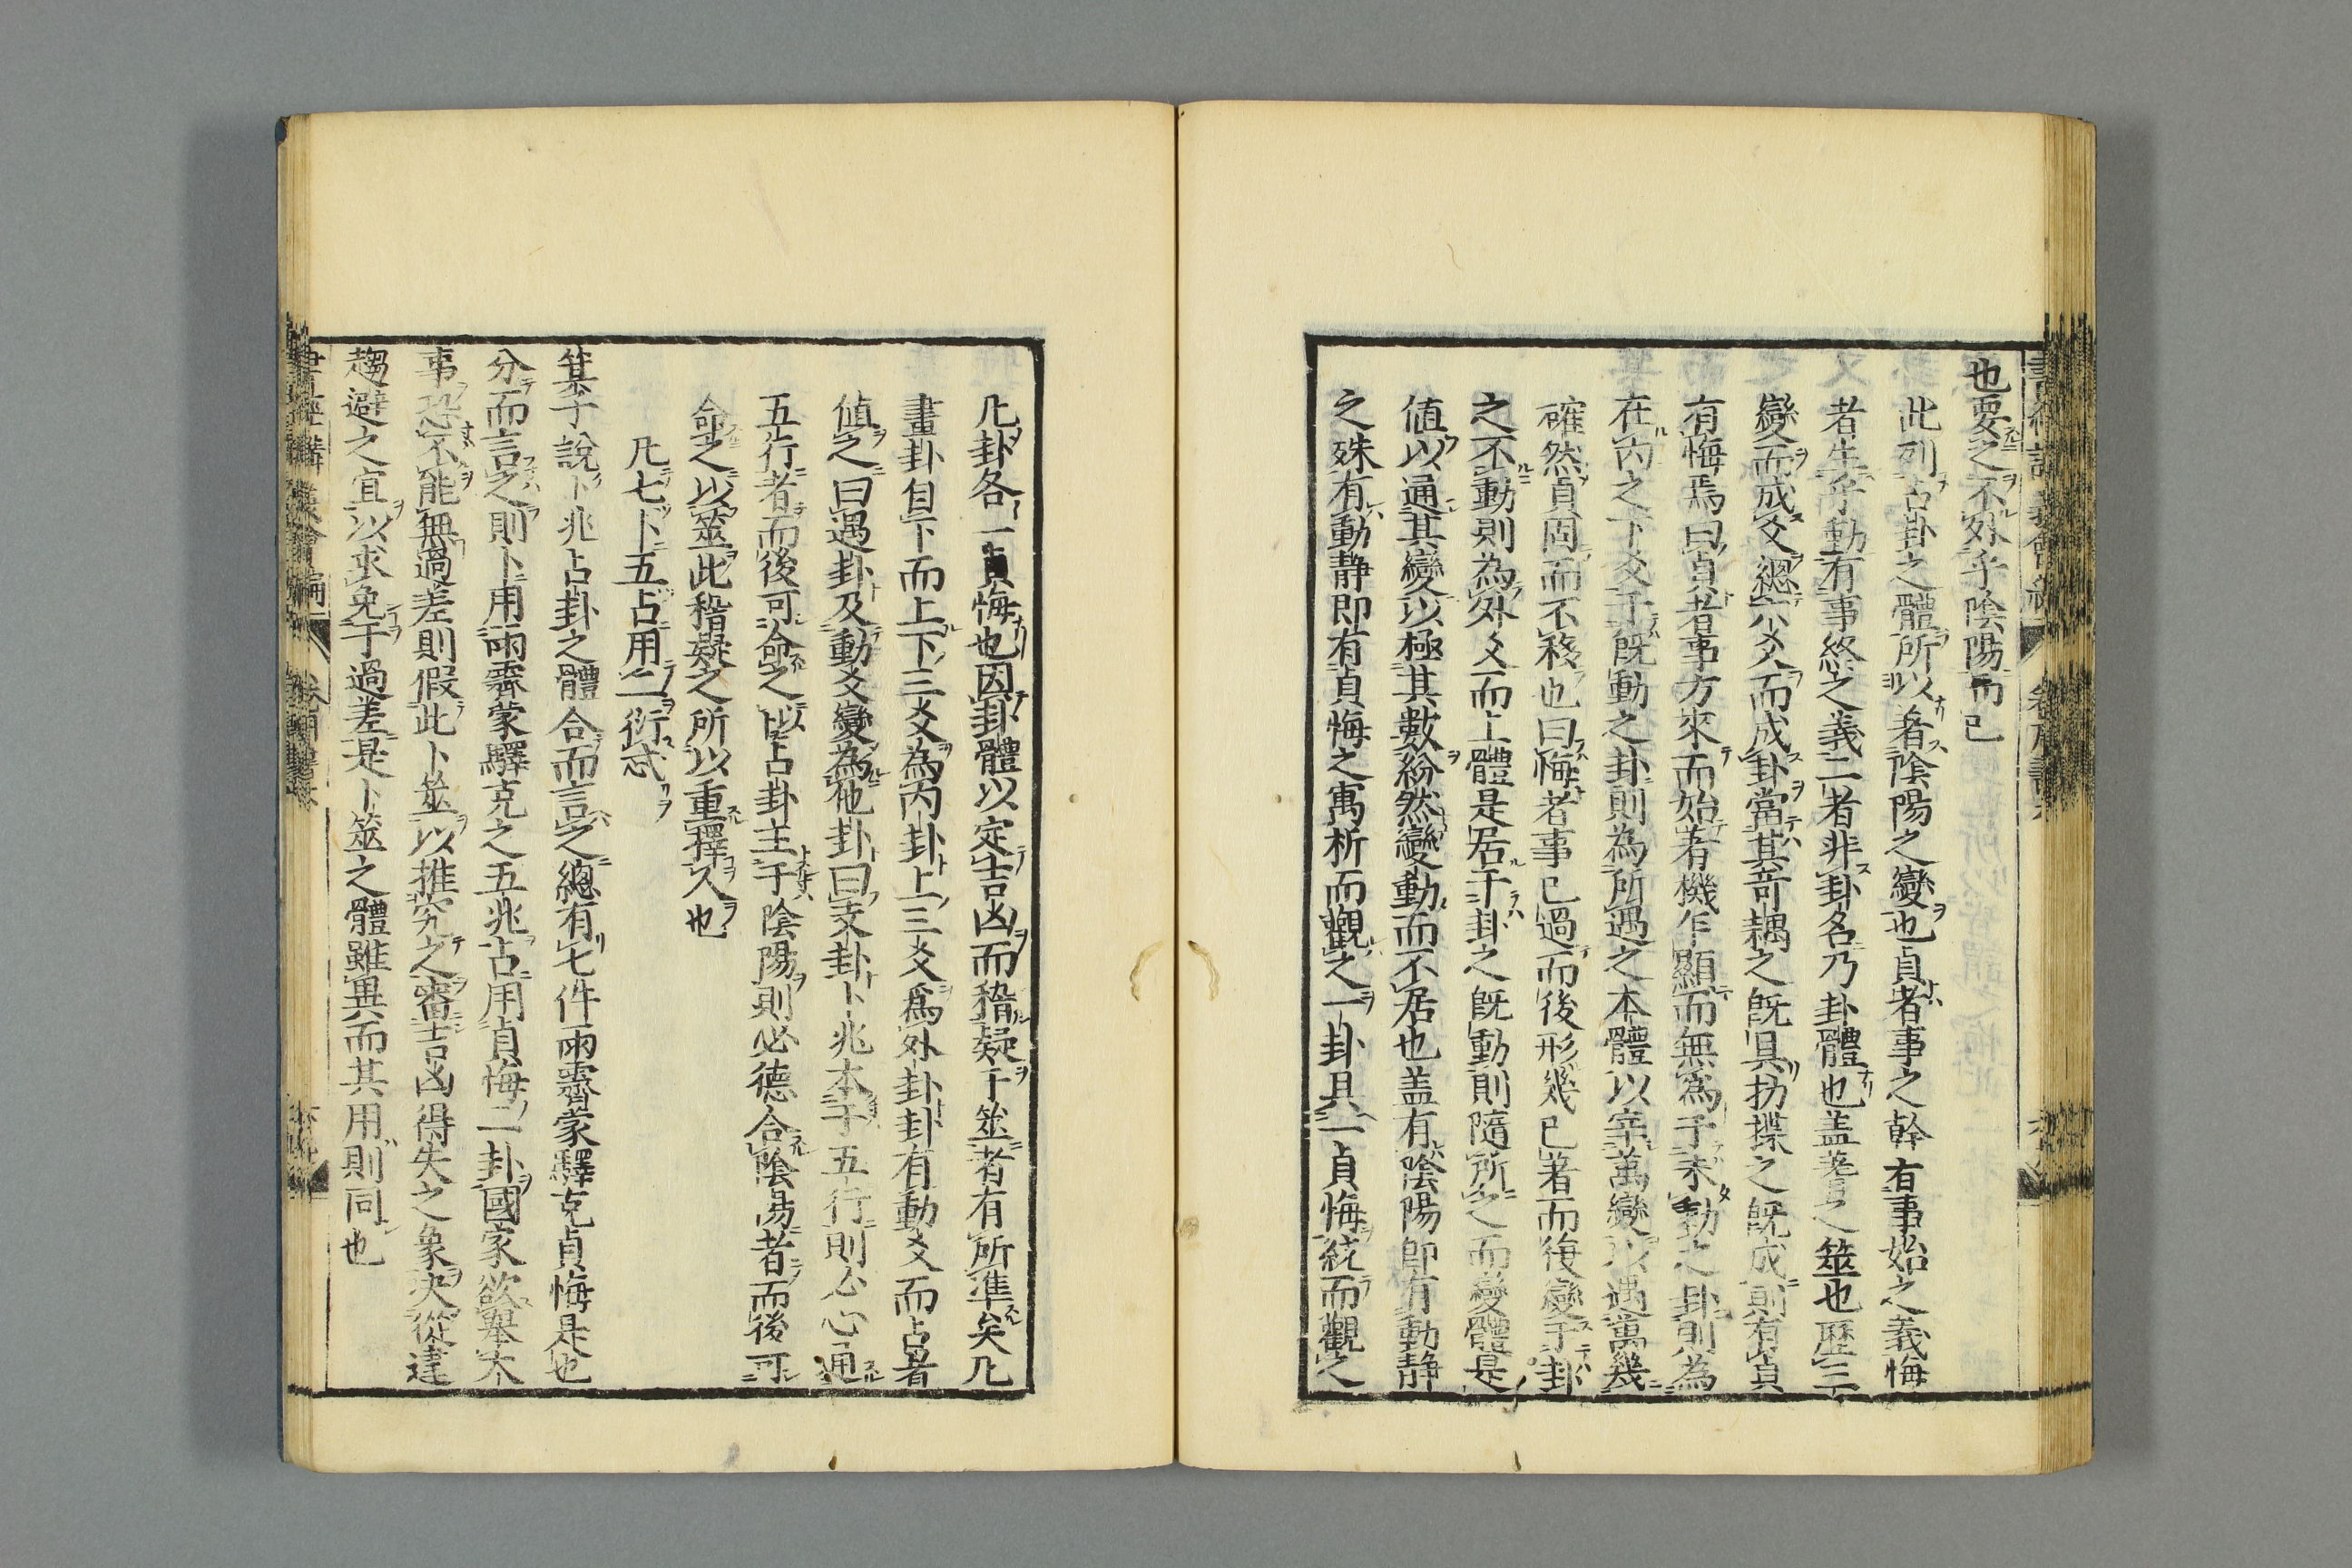 也要之不外乎陰陽而已
此列占卦之體所以著陰陽之變也貞者事之幹有事始之義悔
者生乎動有事終之義二者非卦名乃卦體也盖蓍之筮也歷三
變而成爻總六爻而成卦當其奇耦之既具扐揲之既成則有貞
有悔焉曰貞者事方來而始著機乍顯而無為于未動之卦則為
在內之下爻于既動之卦則為所遇之本體以宰萬變以遇萬幾
確然貞固而不移也曰悔者事已過而後形幾已著而後變于卦
之不動則為外爻而上體是居于卦之既動則隨所之而變體是
值以通其變以極其數紛然變動而不居也盖有陰陽即有動靜
之殊有動靜即有貞悔之寓析而觀之一卦具一貞悔統而觀之
凡卦各一貞悔也因卦體以定吉凶而稽疑于筮者有所準矣凡
畫卦自下而上下三爻為內卦上三爻爲外卦卦有動爻而占者
值之曰遇卦及動爻變為他卦曰支卦卜兆本于五行則必心通
五行者而後可命之以卜占卦主于陰陽則必德合陰易者而後可
命之以筮此稽疑之所以重擇人也
凡七卜五占用二衍忒
箕子說卜兆占卦之體合而言之總有七件雨霽蒙驛克貞悔是也
分而言之則卜用雨霽蒙驛克之五兆占用貞悔二卦國家欲舉大
事恐不能無過差則假此卜筮以推究之審吉凶得失之象决從違
趨避之宜以求免于過差是卜筮之體雖異而其用則同也
書經講義會編